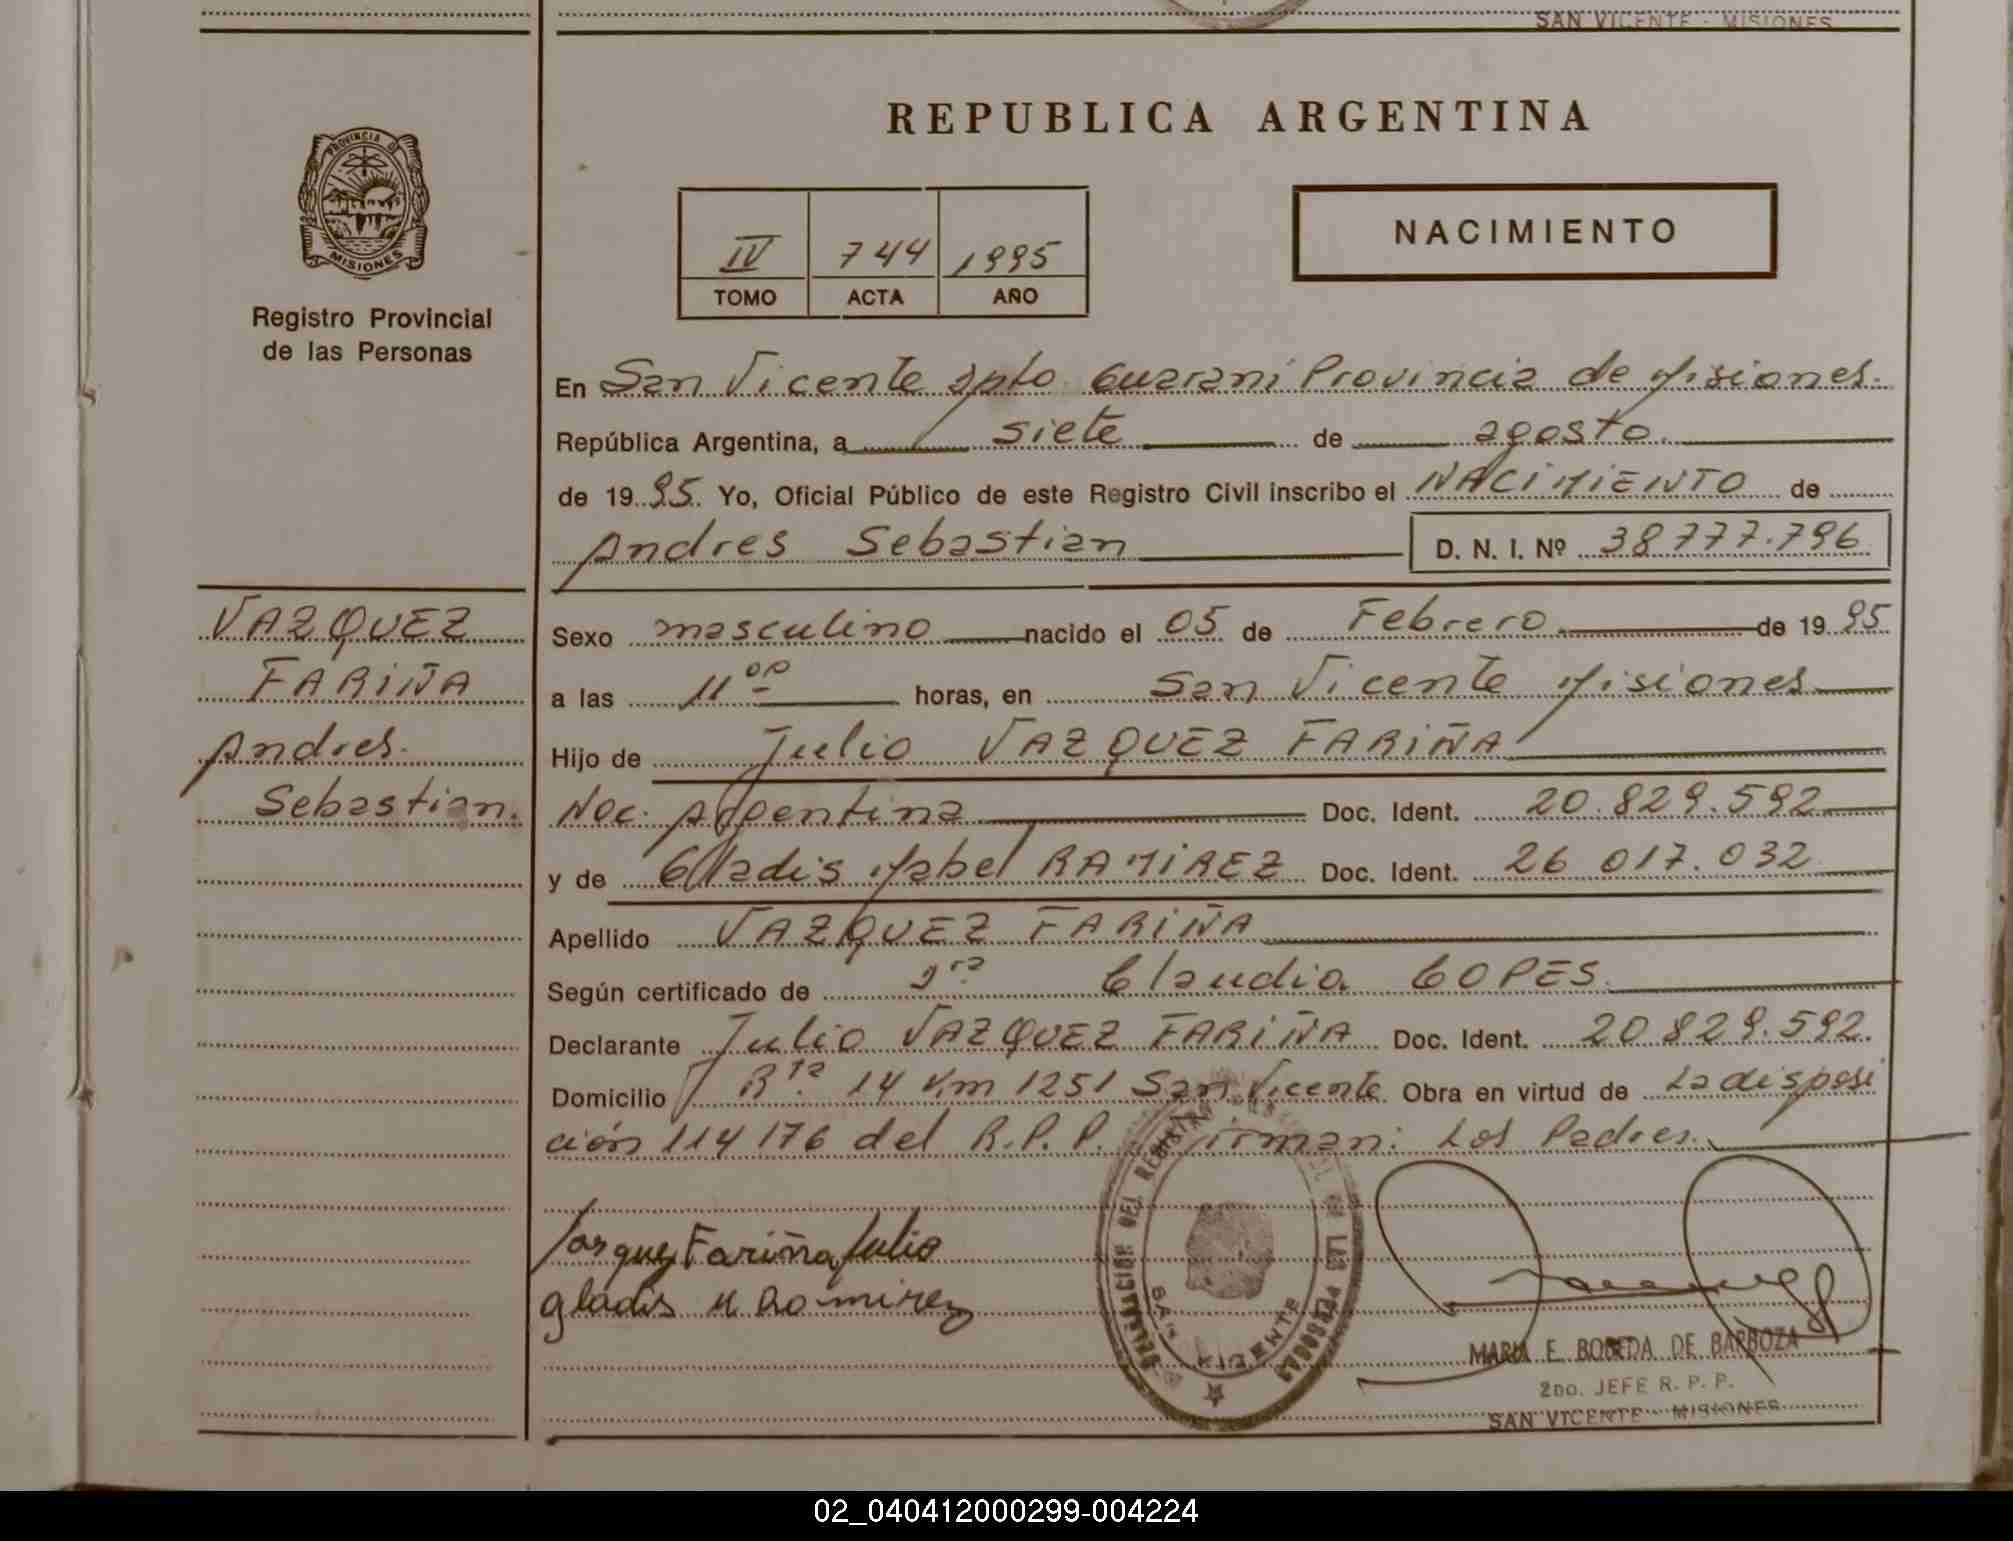 SAN VICENTE - MISIONES
REPUBLICA ARGENTINA
PROVINCIA DE
MISIONES
Registro Provincial
de las Personas
IV 744 1995
TOMO ACTA AÑO
NACIMIENTO
En San Vicente Dpto. Guarani Provincia de Misiones.
República Argentina, a siete de agosto.
de 1995. Yo, Oficial Público de este Registro Civil inscribo el NACIMIENTO de
Andres Sebastian D. N. I. Nº 38.777.796
VAZQUEZ
FARIÑA
Andres.
Sebastian.
Sexo masculino nacido el 05 de Febrero de 1995
a las 11 00 horas, en San Vicente Misiones
Hijo de Julio VAZQUEZ FARIÑA
Nac. Argentina Doc. Ident. 20.829.592
y de Gladis Mabel RAMIREZ Doc. Ident. 26 017.032
Apellido VAZQUEZ FARIÑA
Según certificado de Dra. Claudia COPES.
Declarante Julio VAZQUEZ FARIÑA Doc. Ident. 20 829.592.
Domicilio Rta. 14 Km 1251 San Vicente. Obra en virtud de La disposi
ción 114/76 del R.P.P. Firman: Los Padres.
Vasquez Fariña Julio
gladis M Ramirez
DELEGACION DEL REGISTRO DE LAS PERSONAS
SAN VICENTE
MARIA E. BOBEDA DE BARBOZA
2DO. JEFE R. P. P.
SAN VICENTE - MISIONES
02_040412000299-004224